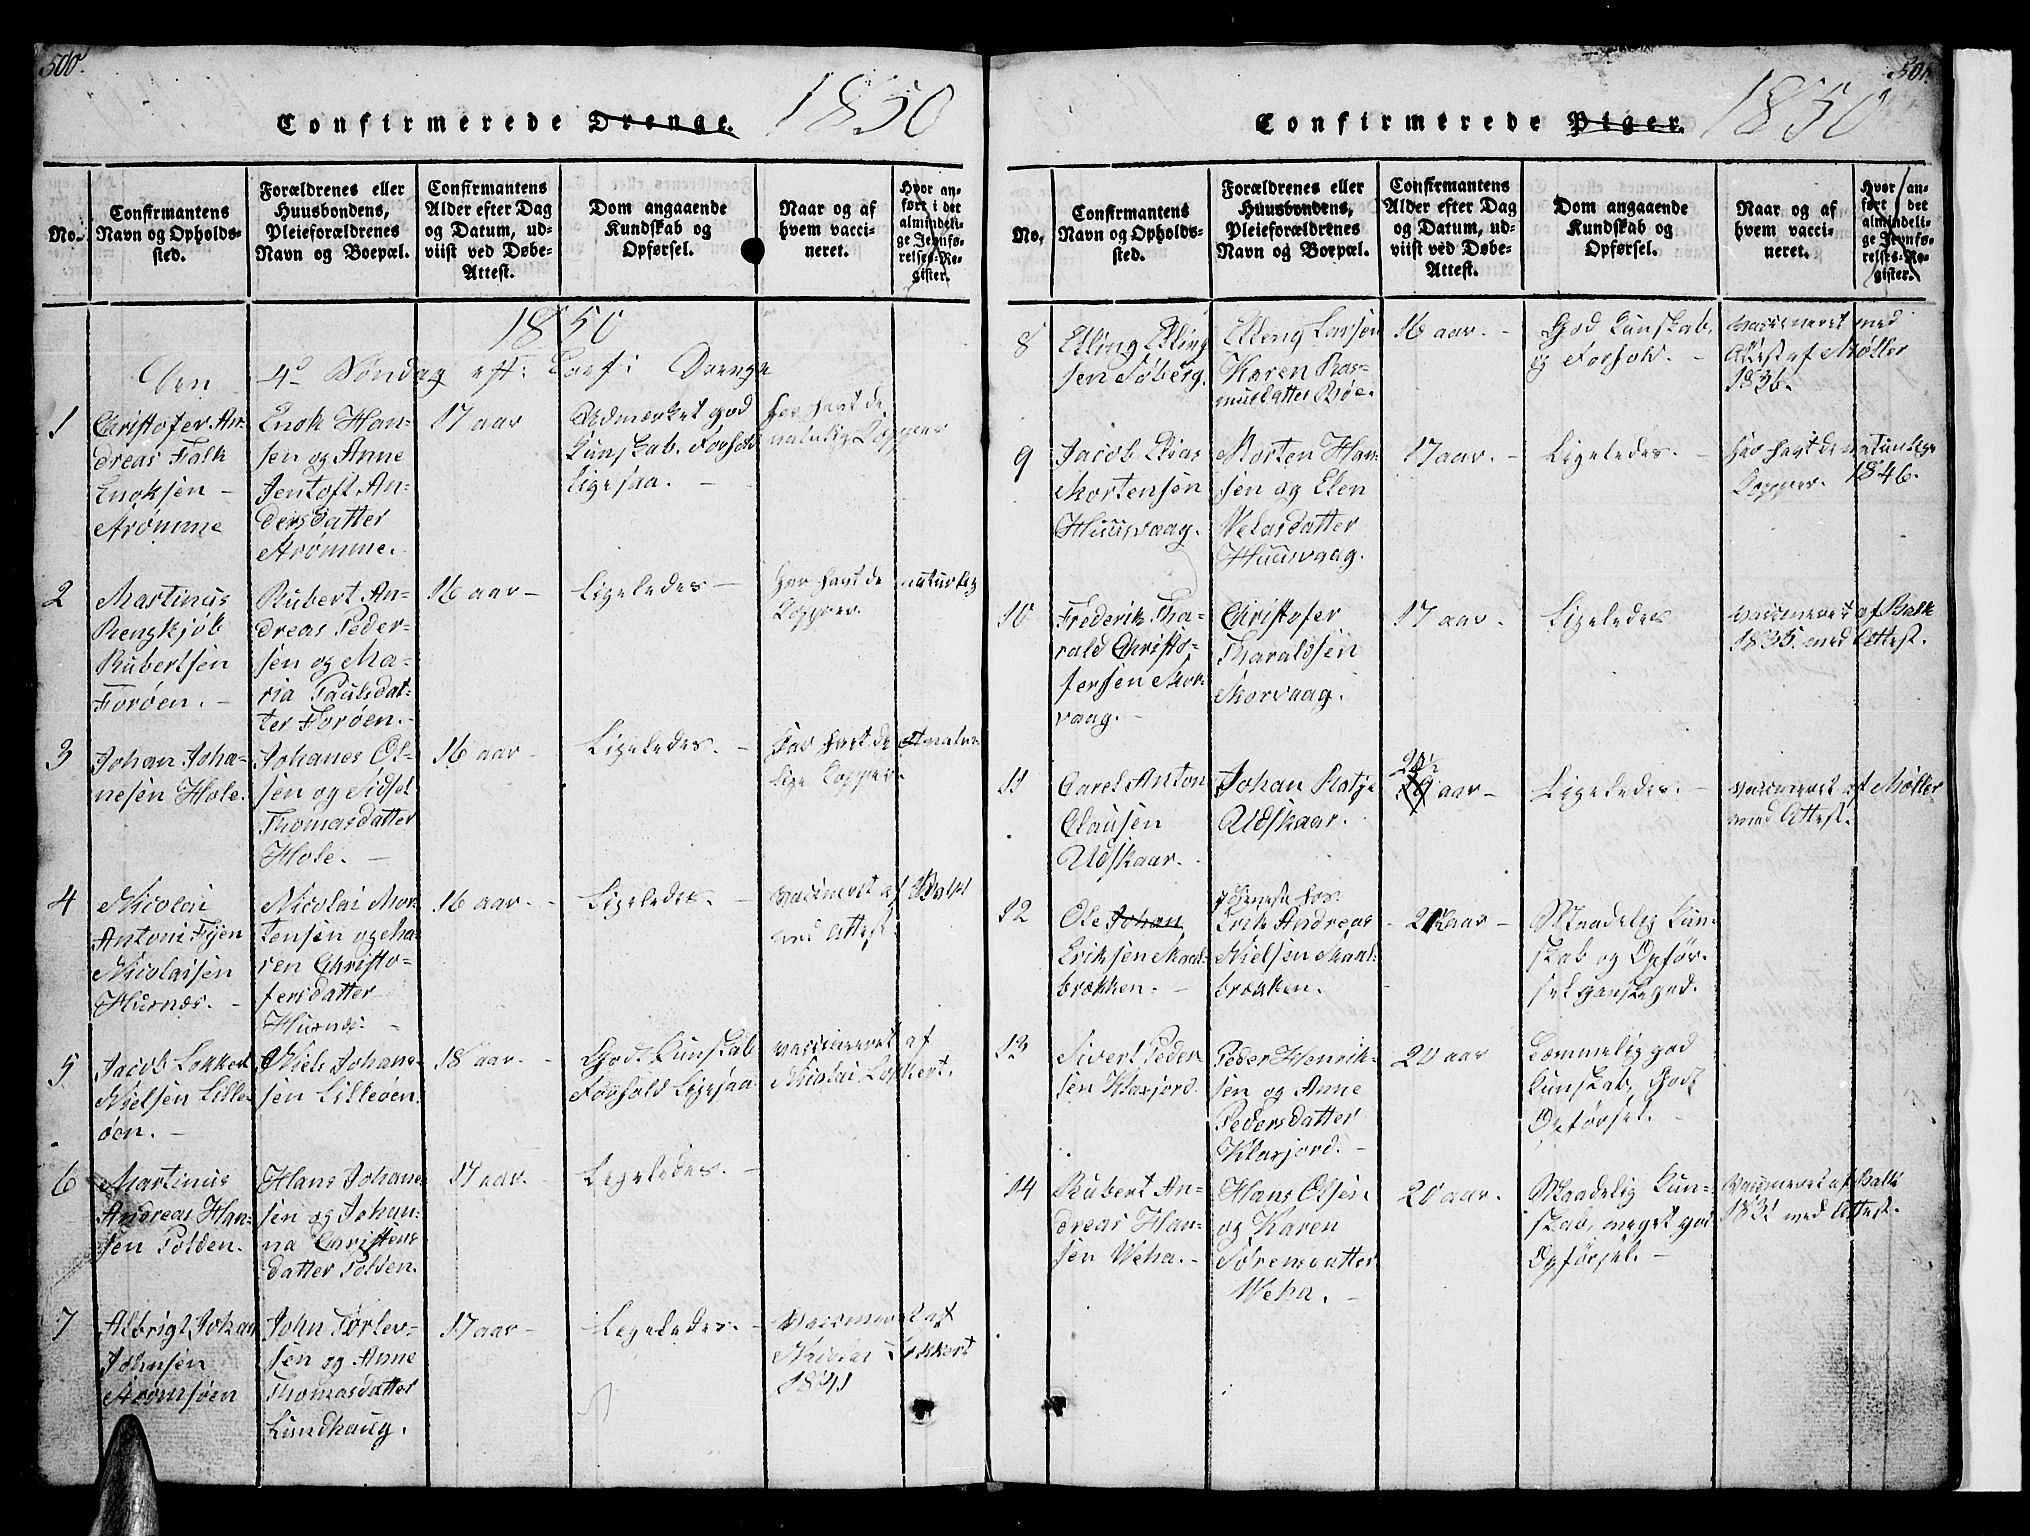 500.
Confirmerede Drenge. 1850
No.
Confirmantens
Navn og Opholds-
sted.
Forældrenes eller
Huusbondens,
Pleieforældrenes
Navn og Boepæl.
Confirmantens
Alder efter Dag
og Datum, ud-
viist ved Døbe-
Attest.
Dom angaaende
Kundskab og
Opførsel.
Naar og af
hvem vacci-
neret.
Hvor an-
ført i det
almindeli-
ge Jevnfø-
relses-Re-
gister.
1850
Den 4de Søndag eft: Drenge
1
Christofer An-
dreas Falk
Enoksen -
Arømme
Enok Han-
sen og Anne
Jentoft An-
dersdatter
Arømme.
17 aar
Udmærket god
Kunskab. Forhold
Ligesaa. -
har havt de
naturlig Kopper
2
Martinus
Rengkjøb
Rubertsen
Forøen. -
Rubert An-
dreas Peder-
sen og Ma-
ria Paulsdat-
ter Forøen. -
16 aar -
Ligeledes -
har havt de naturlig
Kopper
3
Johan Joha-
nesen Hole.
Johanes Ol-
sen og Sidsel
Thomasdatter
Hole. -
16 aar -
Ligeledes. -
har havt de natur-
lige Kopper.
4
Nicolai
Antoni Fyen
Nicolaisen
Husnæs. -
Nicolai Mor-
tensen og Ma-
ren Christo-
fersdatter
Husnæs. -
16 aar. -
Ligeledes. -
vaccineret af
med Attest.
5
Jacob Lokkert
Nielsen Lille-
øen. -
Niels Johane-
sen Lilleøen.
18 aar. -
Godt Kunskab
Forhold Ligesaa
vaccineret af
Nicolai Lokkert.
6
Martinus
Andreas Han-
sen Polden.
Hans Johane-
sen og Johan-
na Christens
datter Polden.
17 aar. -
Ligeledes. -
7
Albrigt Johan
Johnsen
Arømsøen
John Tørlev-
sen og Anne
Thomasdatter
Lundhaug.
17 aar -
Ligeledes. -
Vaccineret af
Nicolai Lokkert
1841
501.
Confirmerede Piger. 1850
No.
Confirmantens
Navn og Opholds-
sted.
Forældrenes eller
Huusbondens,
Pleieforældrenes
Navn og Boepæl.
Confirmantens
Alder efter Dag
og Datum, ud-
viist ved Døbe-
Attest.
Dom angaaende
Kundskab og
Opførsel.
Naar og af
hvem vacci-
neret.
Hvor an-
ført i det
almindeli-
ge Jevnfø-
relses-Re-
gister.
8
Elling Elling
sen Søberg.
Elleng Larsen
Karen Ras-
musdatter Bøe.
16 aar. -
God Kunskab,
og Forhold. -
vaccineret med
Attest af Møller
1836.
9
Jacob Elias
Mortensen
Huusvaag.
Morten Han-
sen og Elen
Nelasdatter
Huusvaag.
17 aar. -
Ligeledes. -
har havt de naturlige
Kopper. 1846.
10
Frederik Tha-
rald Christo-
fersen Mor-
vaag. -
Christofer
Tharaldsen
Morvaag.
17 aar. -
Ligeledes
vaccineret af Balk
1835. med Attest.
11
Carel Anton
Clausen
Udskaar. -
Johan Ratje
Udskaar.
20½
19 aar -
Ligeledes. -
vaccineret af Møller
med Attest.
12
Ole Johan
Eriksen Maal-
brækken. -
tjeneste hos
Erik Andreas
Nielsen Maal-
brækken.
aar -
Maadelig Kun-
skab og Opfør-
sel ganske god.
13
Sivert Peder-
sen Klasjord.
Peder Henrik-
sen og Anne
Pedersdatter
Klasjord. -
20 aar
Temmelig god
Kunskab, Godt
Opførsel. -
14
Rubert An-
dreas Han-
sen Weha. -
Hans Olsen
og Karen
Sørensdatter
Weha. -
20 aar. -
Maadelig Kun-
skab, meget god
Opførsel. -
Vaccineret af Balk
1831 med Attest.